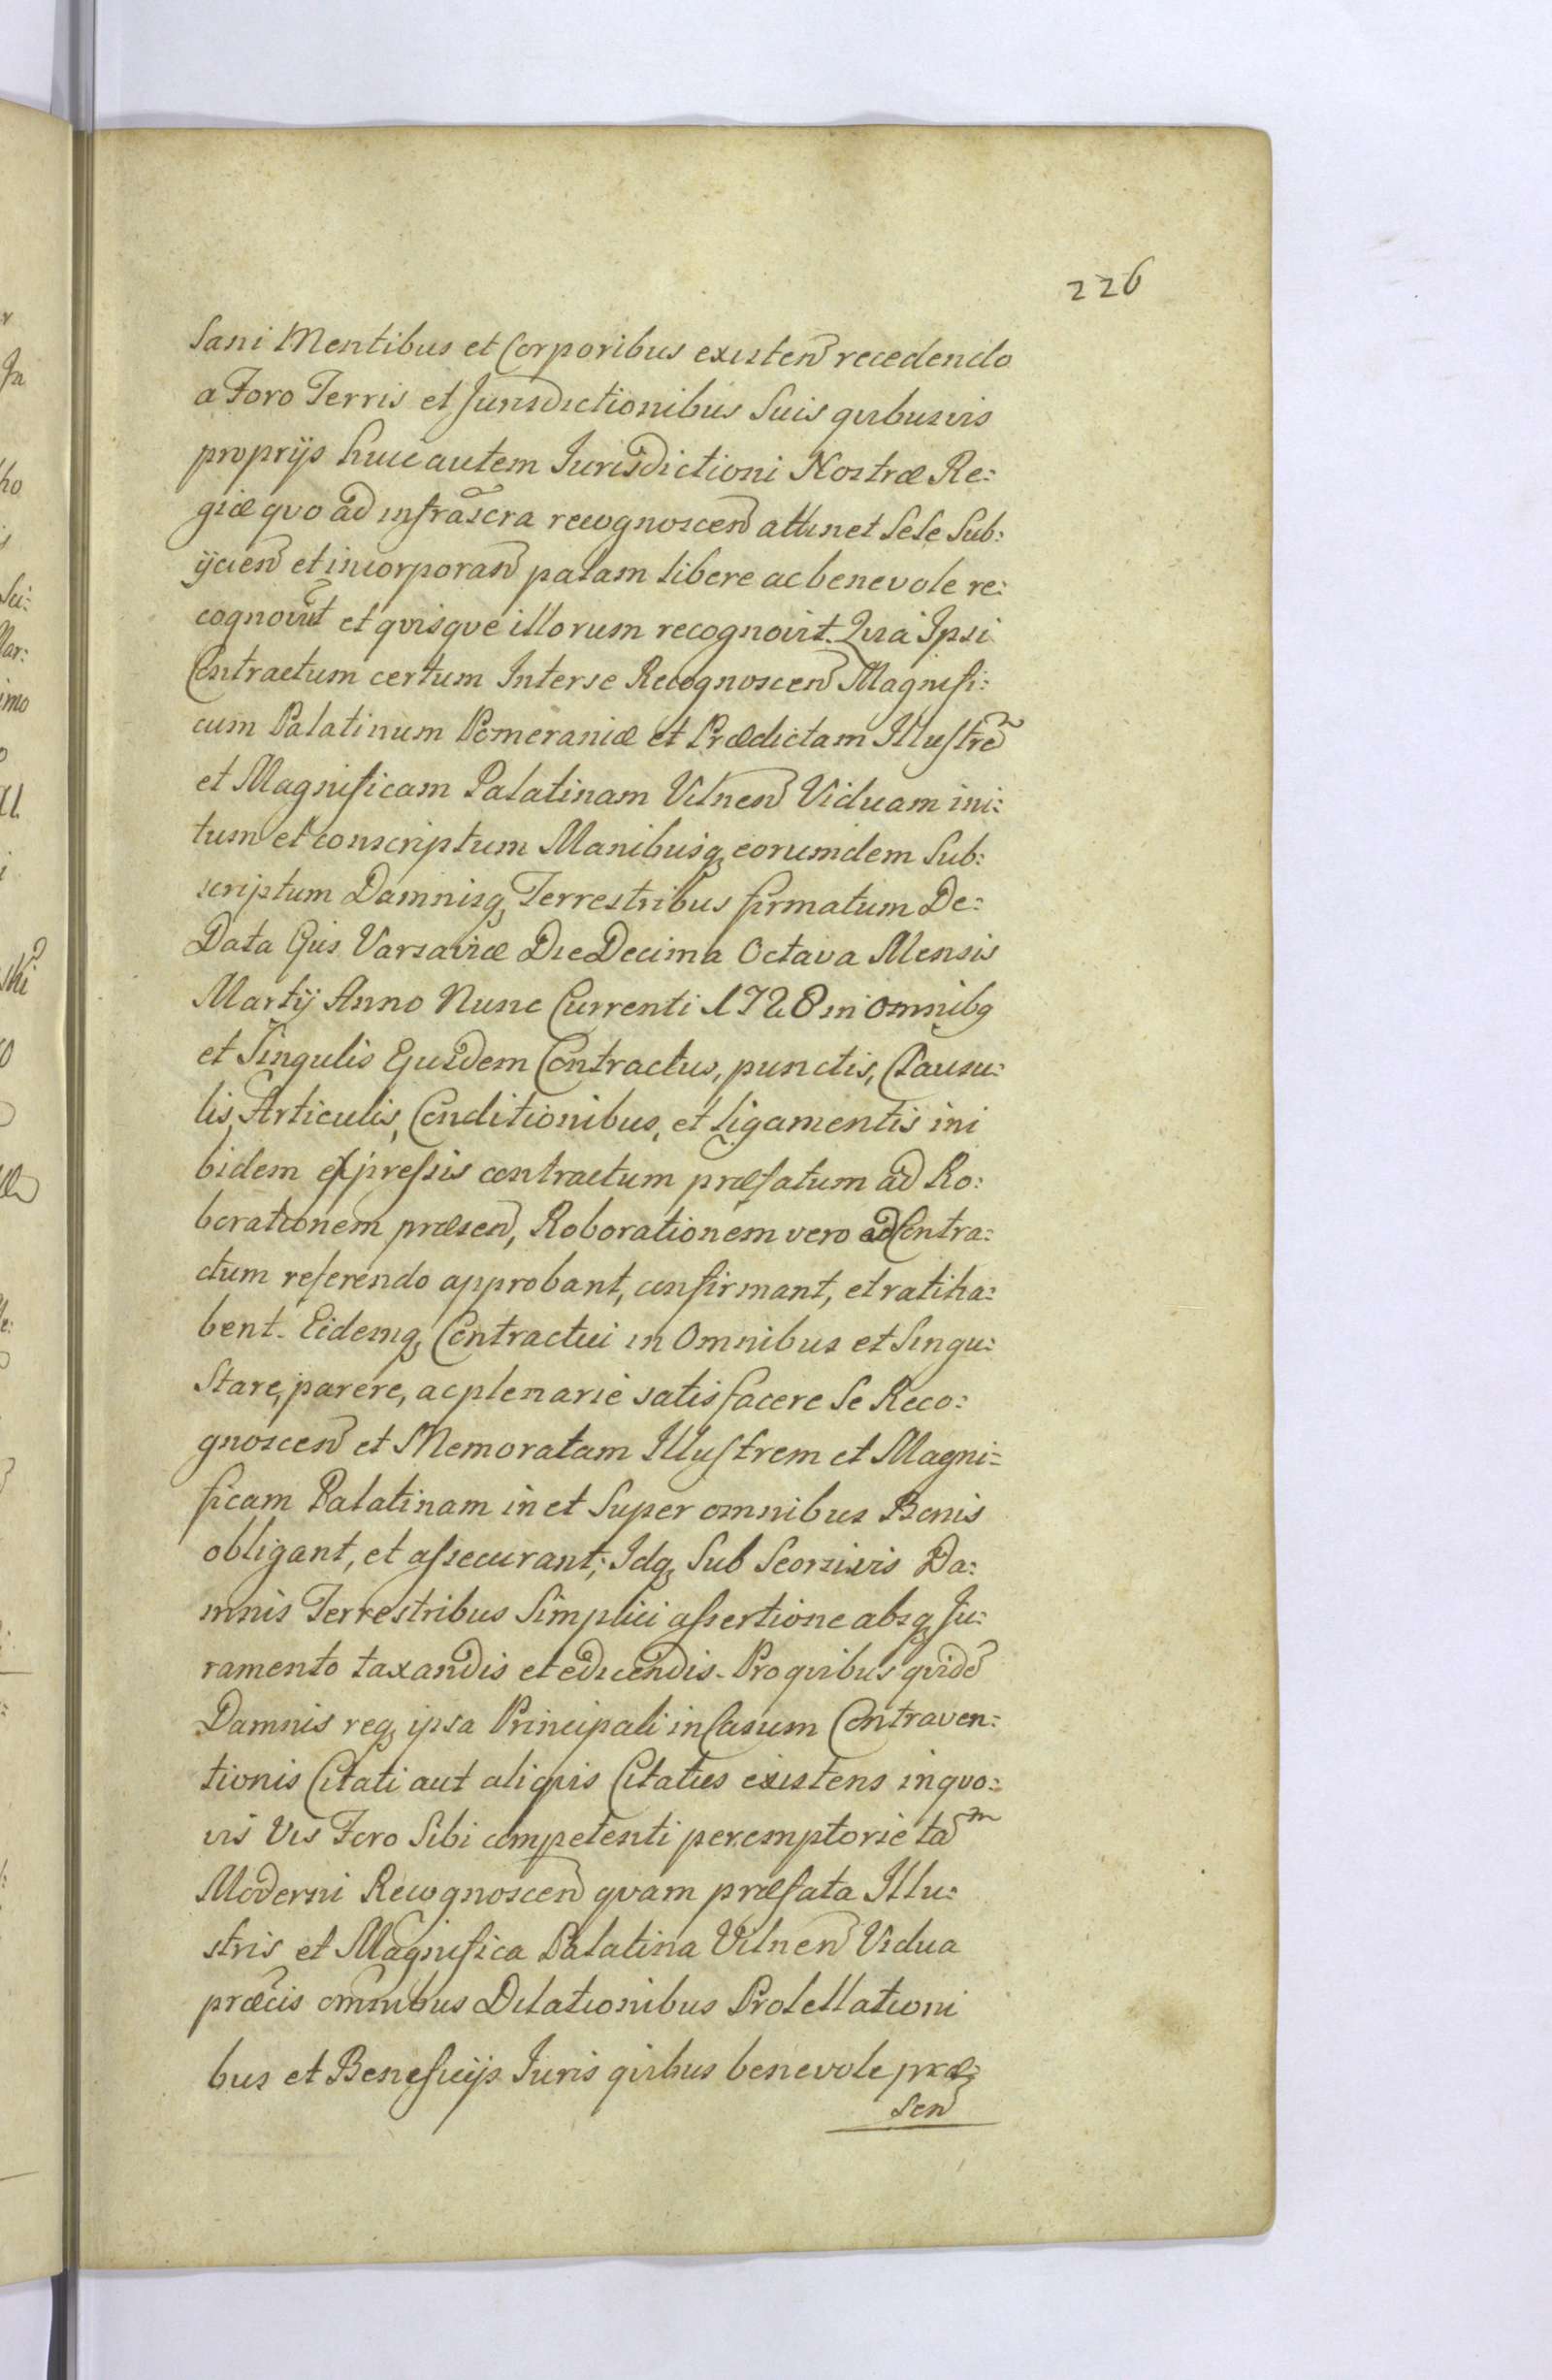 226
Sani Mentibus et Corporibus existen recedendo
a Foro Terris et Jurisdictionibus Suis quibusvis
proprijs huic autem Jurisdictioni Nostræ Re:
giæ quo ad infrascra recognoscen attinet Sese Sub:
ijcien et incorporan palam libere ac benevole re:
cognovut et quisque illorum recognovit. Quia Ipsi
Contractum certum Inter se Recognoscen Magnifi:
cum Palatinum Pomeraniæ et Prædictam Illustre
et Magnificam Palatinam Vilnen Viduam ini:
tum et conscriptum Manibusq eorumdem Sub:
scriptum Damnisq Terrestribus firmatum De:
Data Ejus Varsaviæ Die Decima Octava Mensis
Martij Anno Nunc Currenti 1728 in Omnibq
et Singulis Ejusdem Contractus, punctis, Clausu:
lis, Articulis, Conditionibus, et Ligamentis ini
bidem expressis contractum præfatum ad Ro:
borationem præsen, Roborationem vero ad Contra:
ctum referendo approbant, confirmant, et ratiha:
bent. Eidemq Contractui in Omnibus et Singu:
Stare, parere, ac plenarie satisfacere Se Reco:
gnoscen et Memoratam Illustrem et Magni=
ficam Palatinam in et Super omnibus Bonis
obligant, et assecurant; Idq Sub Seorsivis Da:
mnis Terrestribus Simplici assertione absq Ju:
ramento taxandis et edicendis. Pro quibus quide
Damnis req ipsa Principali in Casum Contraven:
tionis Citati aut aliquis Citatus existens in quo:
vis Vis Foro Sibi competenti peremptorie ta m
Moderni Recognoscen quam præfata Illu:
stris et Magnifica Palatina Vilnen Vidua
præcis omnibus Dilationibus Protellationi
bus et Beneficijs Juris quibus benevole præ:
sen